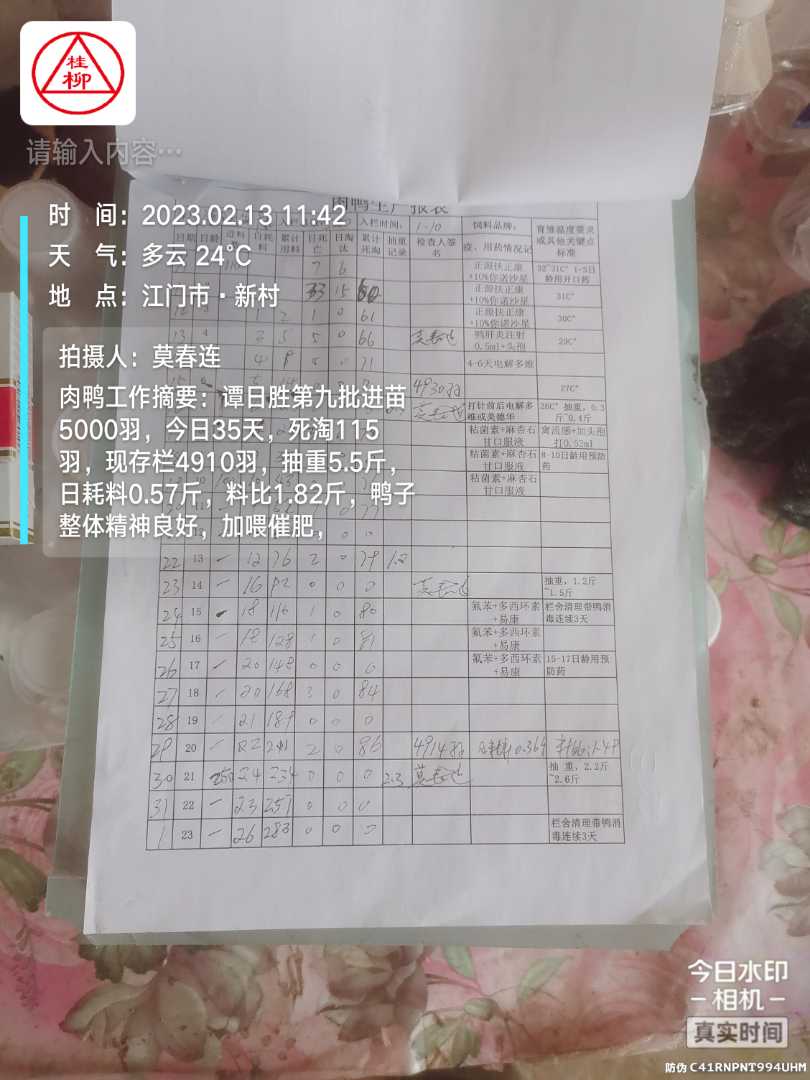 桂
柳
请输入内容…
时 间：2023.02.13 11:42
天 气：多云 24℃
地 点：江门市·新村
拍摄人：莫春连
肉鸭工作摘要：谭日胜第九批进苗
5000羽，今日35天，死淘115
羽，现存栏4910羽，抽重5.5斤，
日耗料0.57斤，料比1.82斤，鸭子
整体精神良好，加喂催肥，
肉鸭生产报表
入栏时间：1-10 饲料品牌： 育雏温度要求
或其他关键点
标准
日期 日龄 进料 日耗料 累计用料 日死亡 日淘汰 累计死淘 抽重记录 检查人签名 疫、用药情况记
7 6 正源扶正康
+10%你诺沙星 32~31C° 1-3日
龄用开口药
33 15 60 正源扶正康
+10%你诺沙星 31C°
1 2 1 0 61 正源扶正康
+10%你诺沙星 30C°
13 4 3 5 5 0 66 莫春连 鸭肝炎注射 29C°
71 4-6天电解多维
4930羽 27C°
打针前后电解多
维或美德华 26C° 抽重，0.3
斤~0.4斤
粘菌素+麻杏石
甘口服液
粘菌素+麻杏石
甘口服液 8-10日龄用预防
药
粘菌素+麻杏石
甘口服液
22 13 — 12 76 2 0 79 1.2
23 14 — 16 92 0 0 0 莫春连 抽重，1.2斤
~1.5斤
24 15 — 18 110 1 0 80 氟苯+多西环素
+易康 栏舍清理带鸭消
毒连续3天
25 16 — 18 128 1 0 81 氟苯+多西环素
+易康
26 17 — 20 148 0 0 0 氟苯+多西环素
+易康 15-17日龄用预
防药
27 18 — 20 168 3 0 84
28 19 — 21 189 0 0 0
29 20 — 22 211 2 0 86 4914羽
30 21 250 24 234 0 0 0 2.3 莫春连 抽 重，2.2斤
~2.6斤
31 22 — 23 257 0 0 0
1 23 — 26 283 0 0 0 栏舍清理带鸭消
毒连续3天
今日水印
-相机-
真实时间
防伪 C41RNPNT994UHM